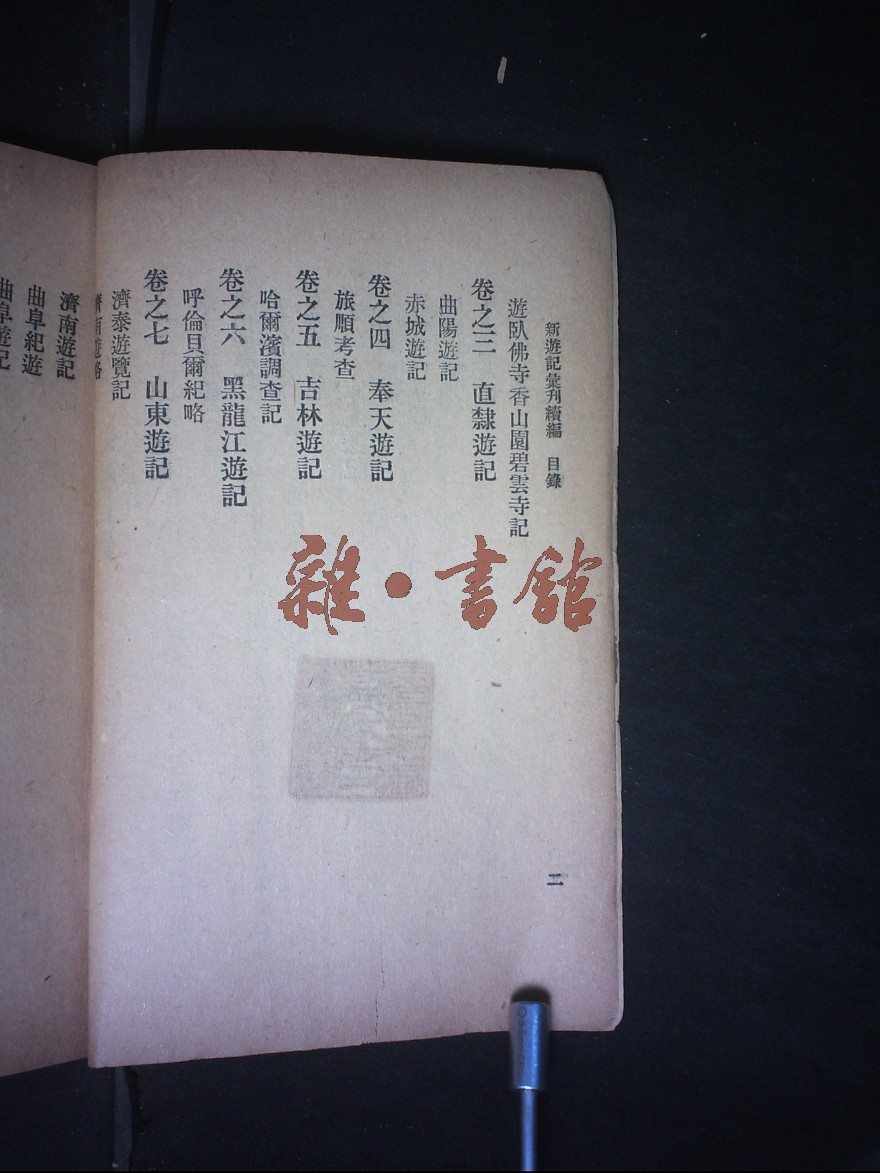 新遊記彙刊續編　目錄
遊臥佛寺香山園碧雲寺記
卷之三　直隸遊記
曲陽遊記
赤城遊記
卷之四　奉天遊記
旅順考查
卷之五　吉林遊記
哈爾濱調查記
卷之六　黑龍江遊記
呼倫貝爾紀略
卷之七　山東遊記
濟泰遊覽記
濟南遊略
濟南遊記
曲阜紀遊
曲阜遊記
二
雜·書館